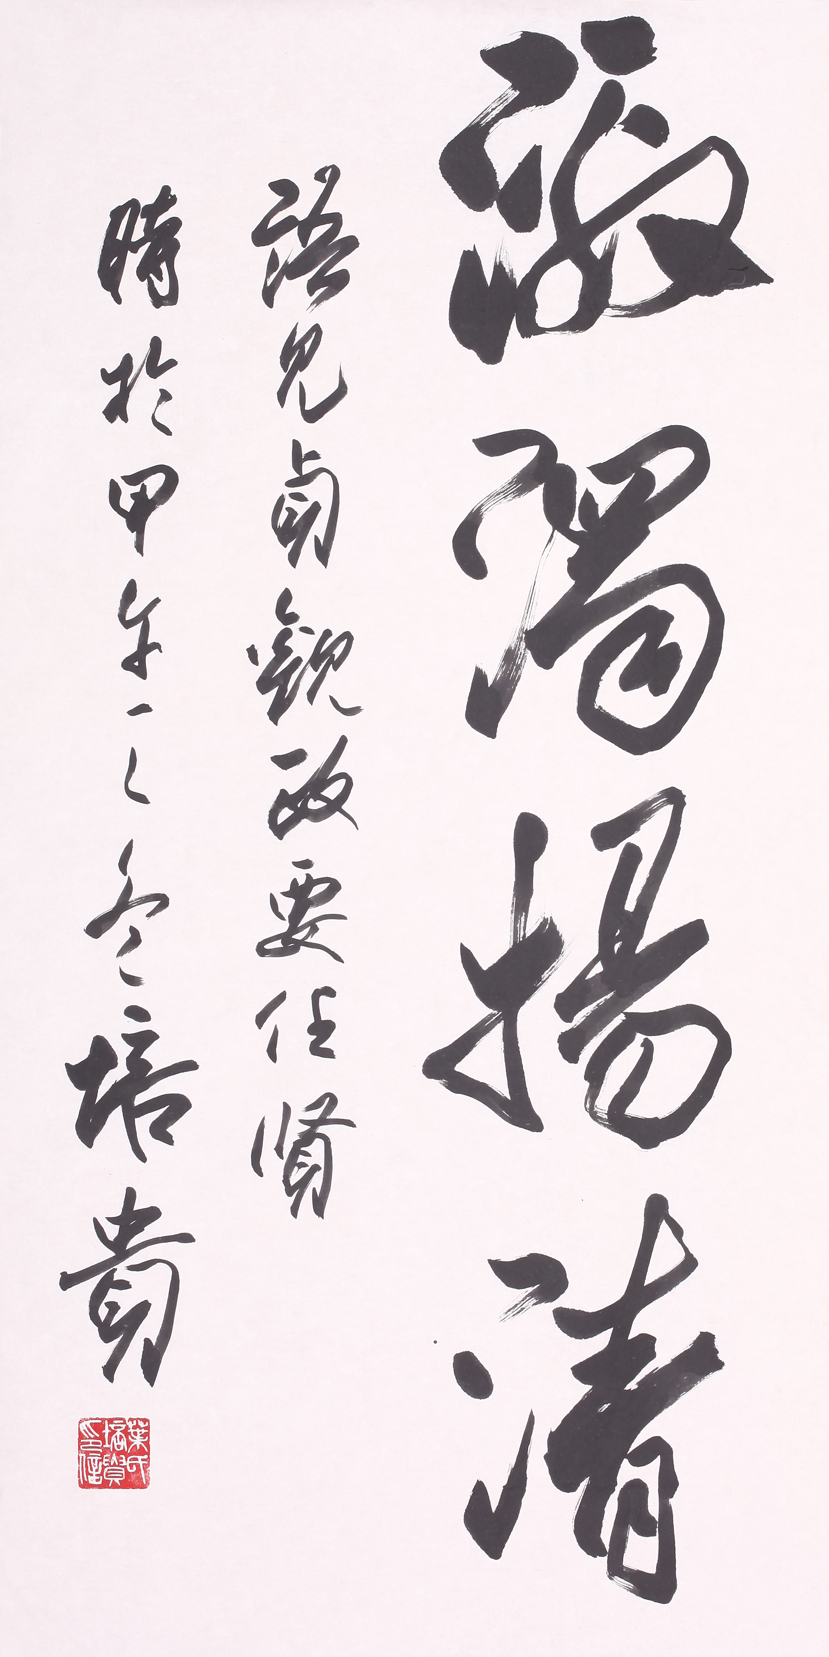 激濁揚清
語見貞觀政要任賢
時於甲午之冬培貴
葉氏培貴印信